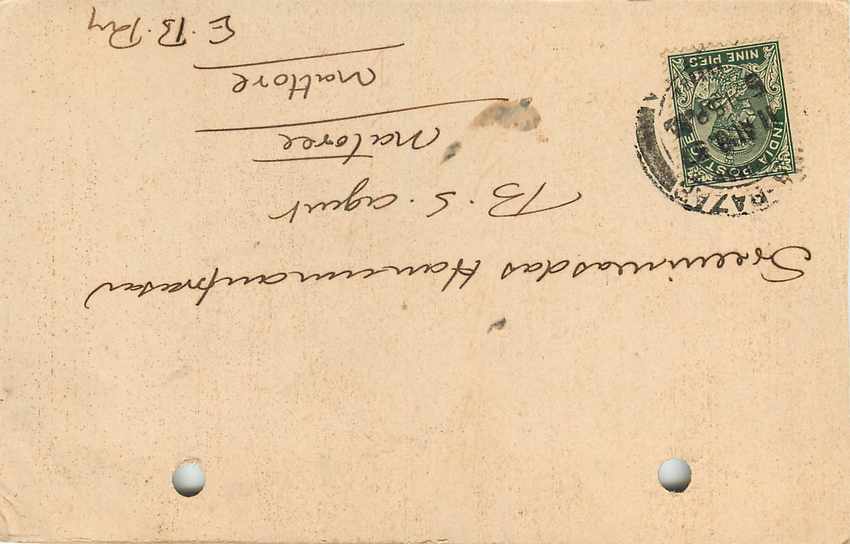 Sreeniveasdas Hanumanprasad
B. S. agent
Natoree
Nattore
E. B. Ry
INDIA POSTAGE
NINE PIES
11 AUG